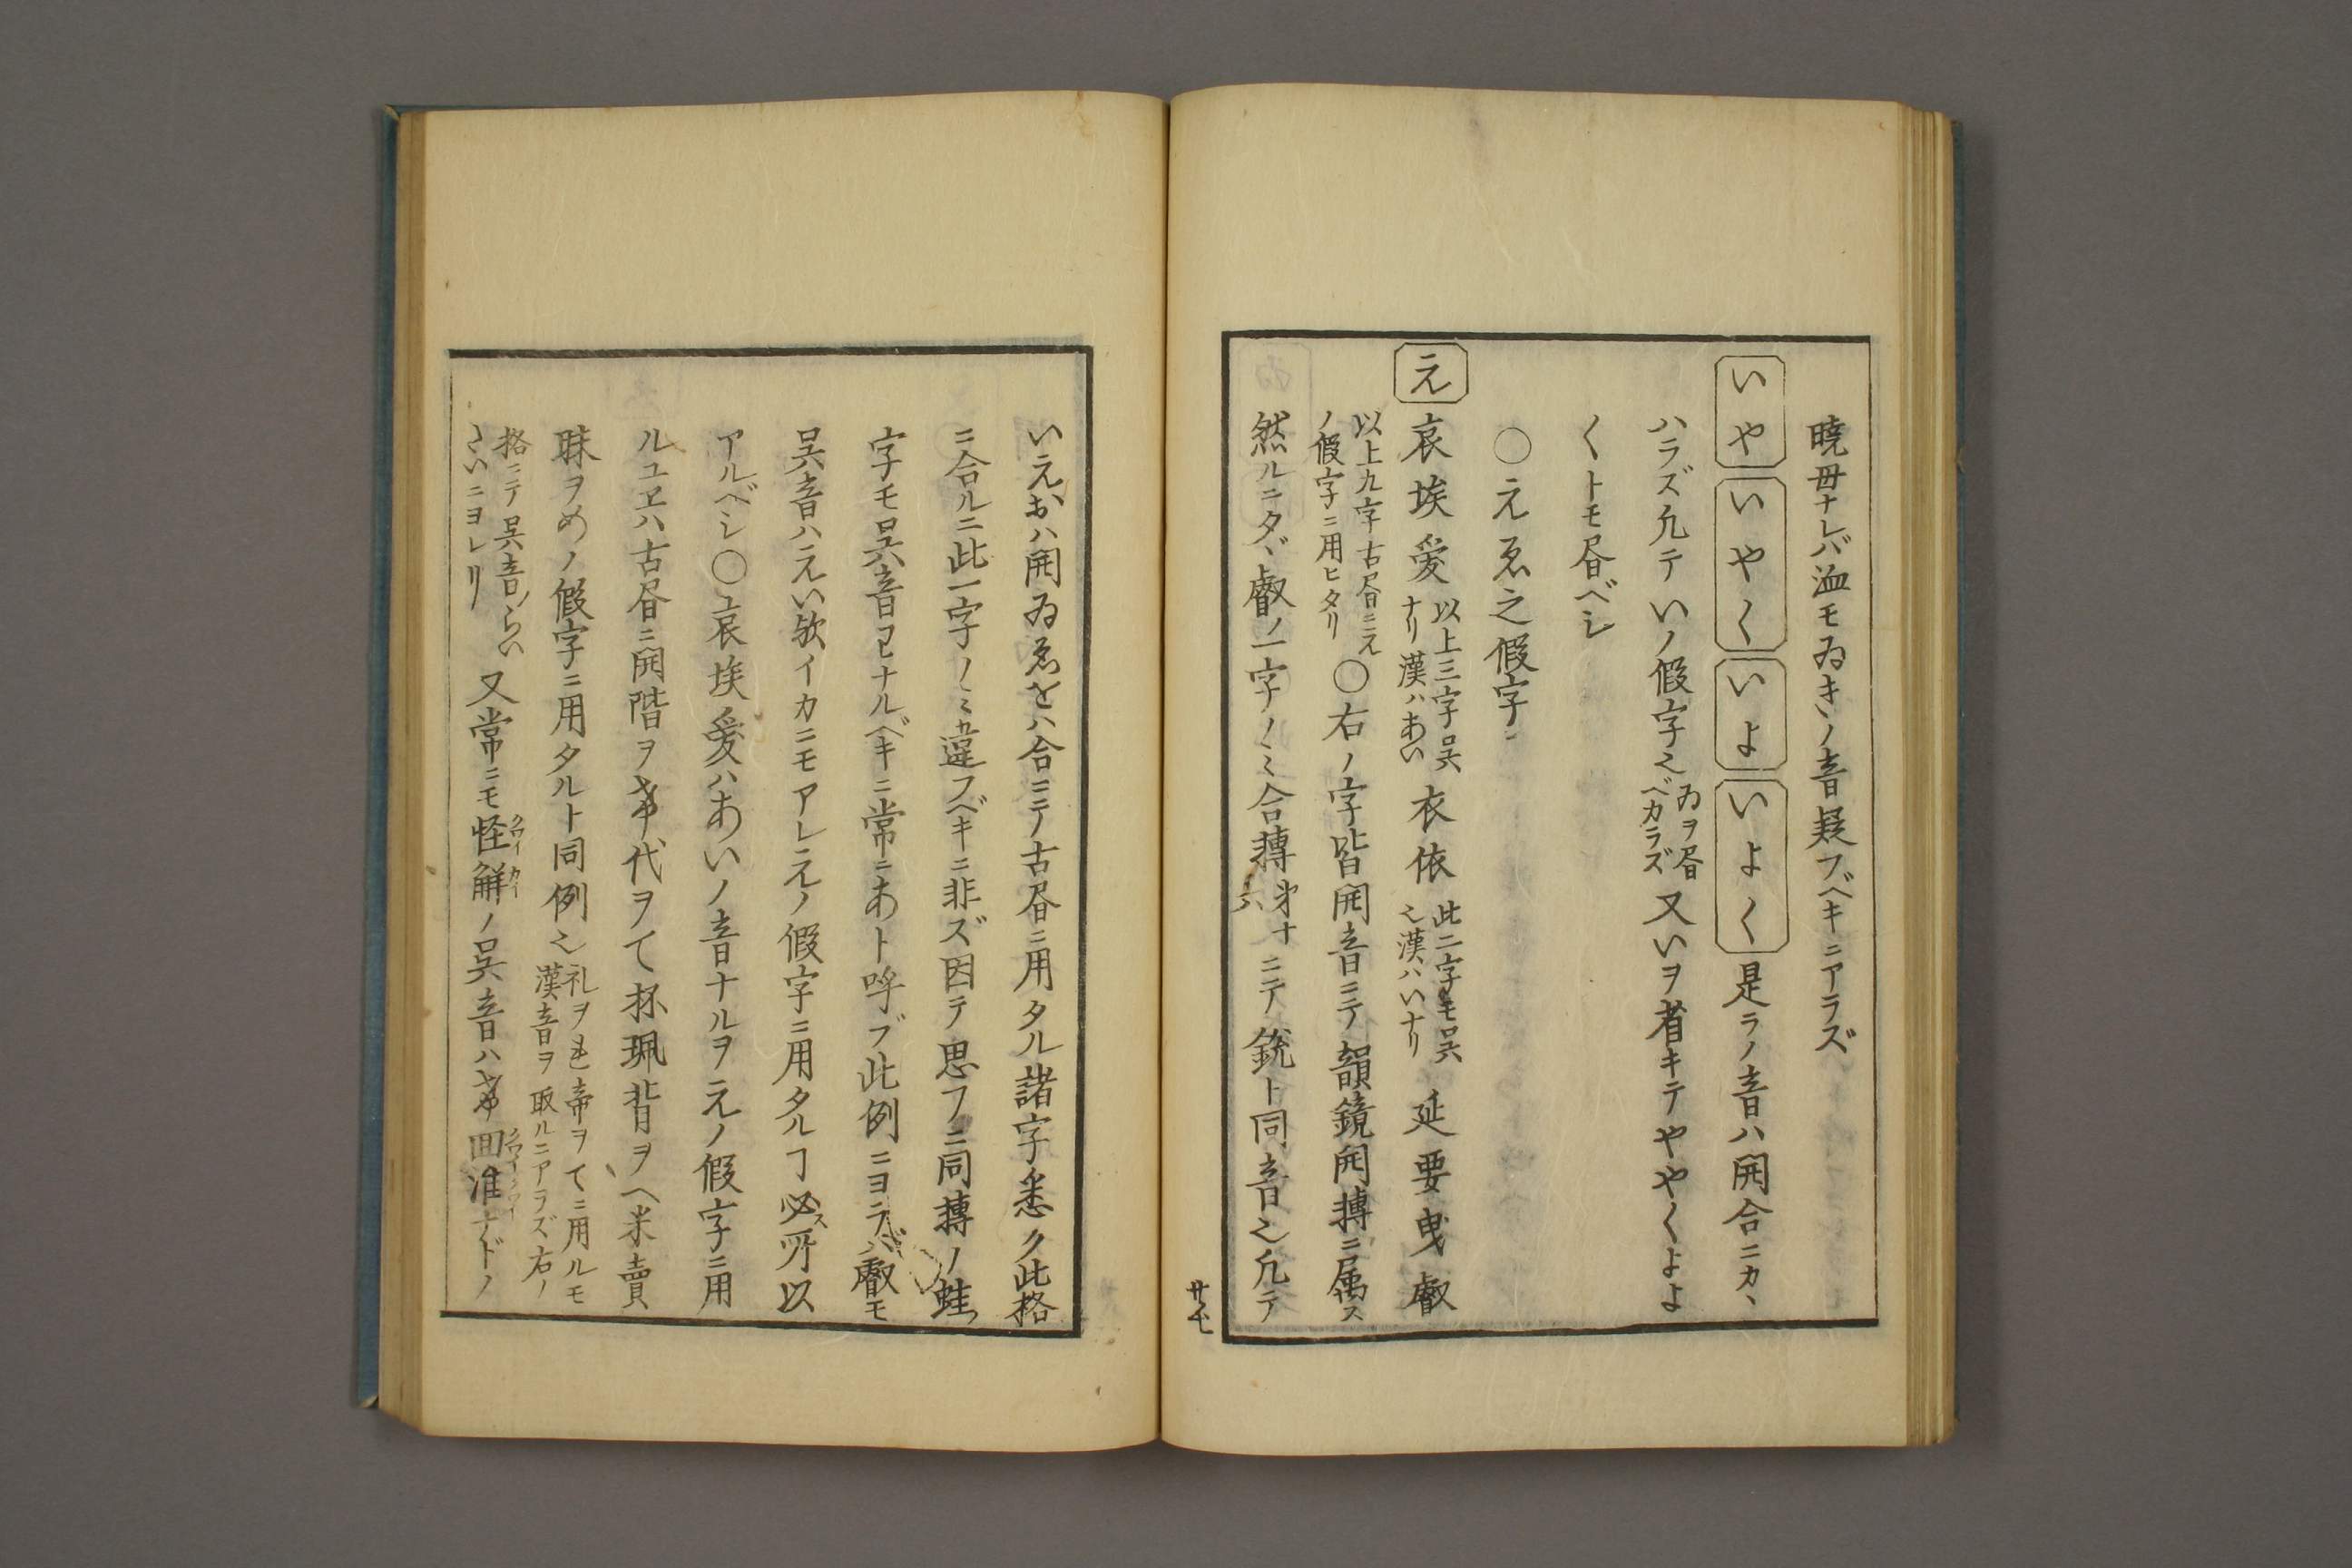 暁母ナレバ洫モゐきノ音疑フベキニアラズ
いや いやく いよ いよく 是ラノ音ハ開合ニカヽ
ハラズ凡テいノ假字也ゐヲ昏ベカラズ又いヲ省キテややくよよ
くトモ昏ベシ
○えゑ之假字
え 哀埃愛以上三字呉ナリ漢ハあい衣依此二字モ呉也漢ハいナリ延要曳叡
以上九字古昏ニえノ假字ニ用ヒタリ○右ノ字皆開音ニテ韻鏡開轉ニ属ス
然ルニタヾ叡ノ一字ノミ合轉第十六ニテ銳ト同音也凡テ
いえおハ開ゐゑをハ合ニテ古昏ニ用タル諸字悉ク此格
ニ合ルニ此一字ノミ違フベキニ非ズ因テ思フニ同轉ノ蛙
字モ呉音ヱナルベキニ常ニあト呼ブ此例ニヨラバ叡モ
呉音ハえい欤イカニモアレえノ假字ニ用タルヿ必ス所以
アルベシ○哀埃愛ハあいノ音ナルヲえノ假字ニ用
ルユヱハ古昏ニ開階ヲけ代ヲて杯珮背ヲへ米賣
眛ヲめノ假字ニ用タルト同例也礼ヲれ帝ヲてニ用ルモ漢音ヲ取ルニアラズ右ノ
格ニテ呉音ノらいたいニヨレリ又常ニモ怪クワイ解カイノ呉音ハけ回クワイ淮クワイナドノ